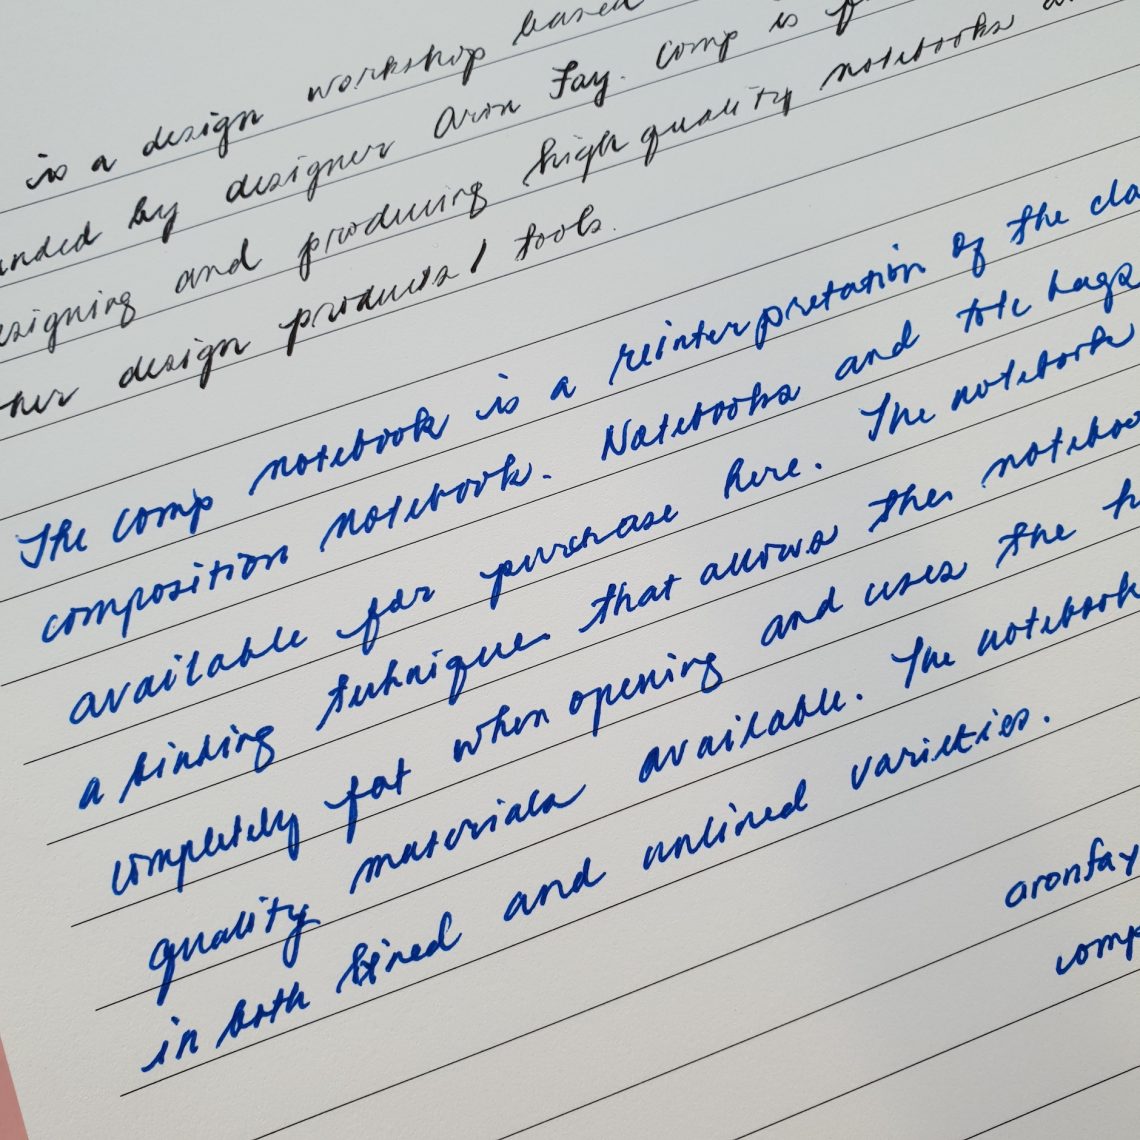 is a design workshop based
nded by designer Aron Fay. Comp is
signing and producing high quality notebooks
her design products / tools.
The comp notebook is a reinterpretation of the cla
composition notebook. Notebooks and tote bags
available for purchase here. The notebook
a binding technique that allows the noteboo
completely fat when opening and uses the h
quality materials available. The notebook
in both lined and unlined varieties.
aronfay
comp